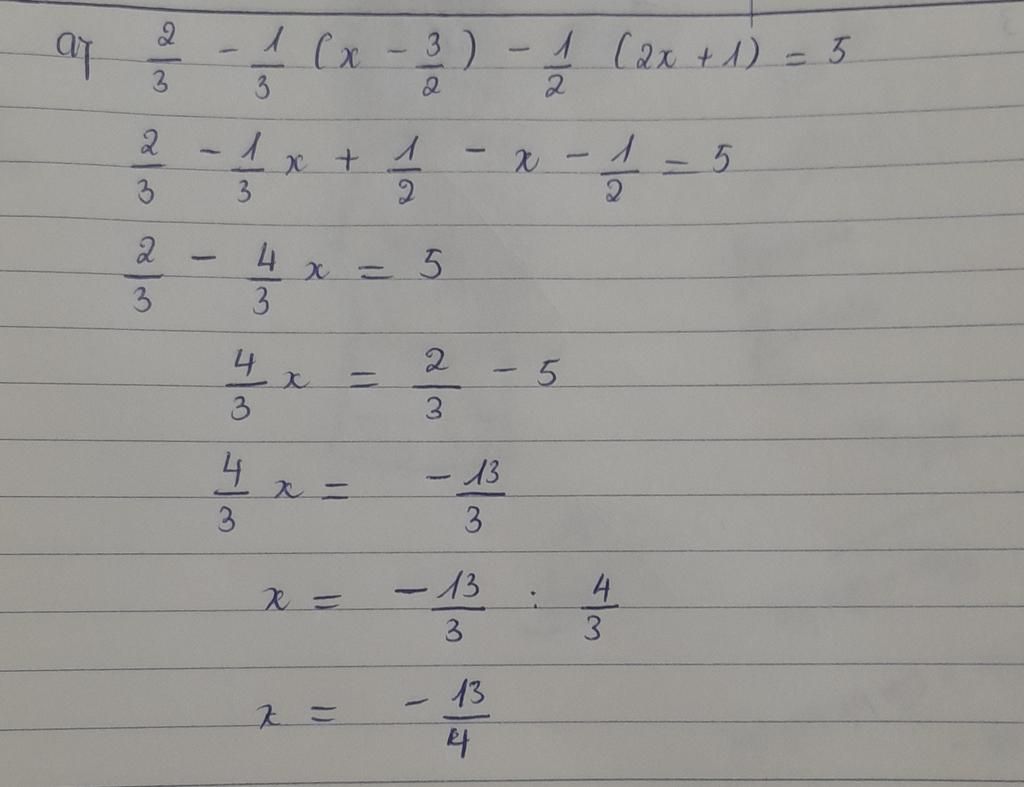 a, 2/3 - 1/3 (x - 3/2) - 1/2 (2x + 1) = 5
2/3 - 1/3 x + 1/2 - x - 1/2 = 5
2/3 - 4/3 x = 5
4/3 x = 2/3 - 5
4/3 x = -13/3
x = -13/3 : 4/3
x = -13/4